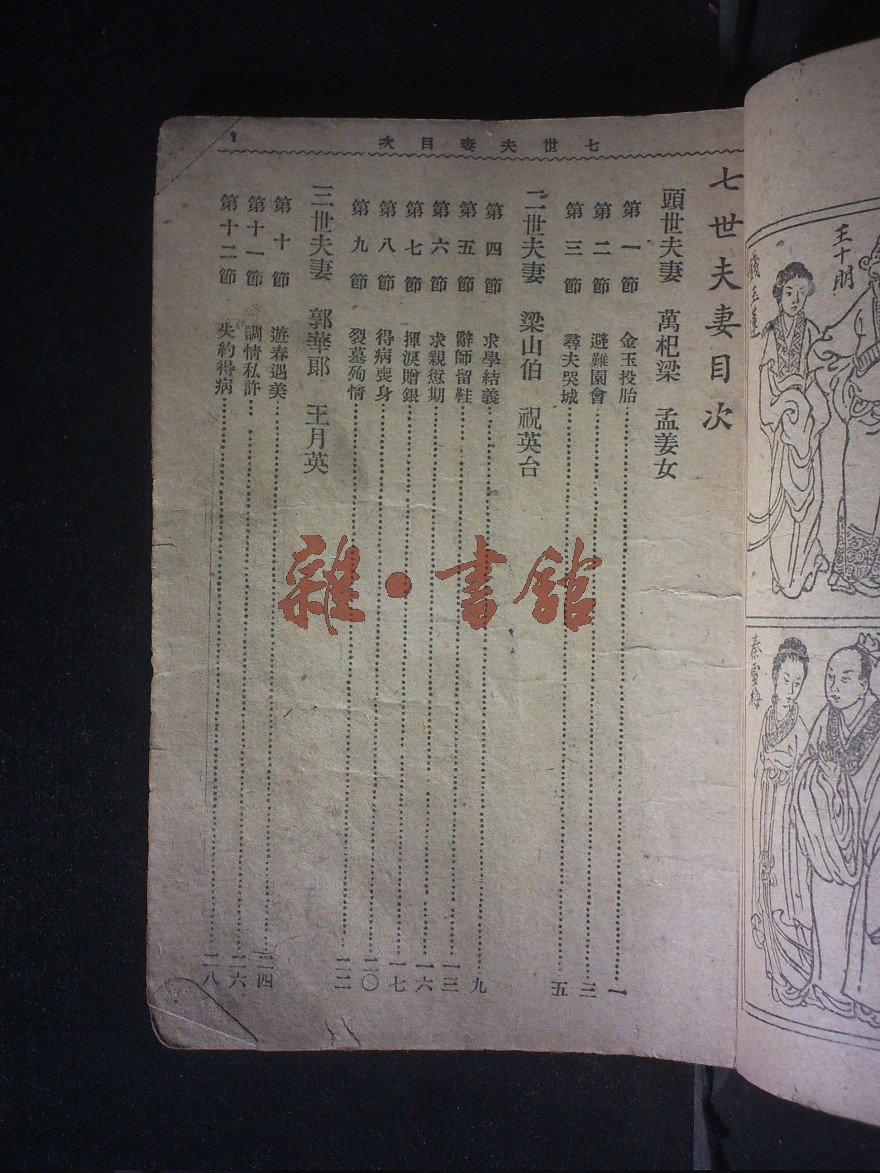 七世夫妻目次
一
七世夫妻目次
頭世夫妻 萬杞梁 孟姜女
第一節 金玉投胎 一
第二節 避難園會 三
第三節 尋夫哭城 五
二世夫妻 梁山伯 祝英台
第四節 求學結義 九
第五節 辭師留鞋 一三
第六節 求親愆期 一六
第七節 揮淚贈銀 一七
第八節 得病喪身 二〇
第九節 裂墓殉情 二二
三世夫妻 郭華郎 王月英
第十節 遊春遇美 二四
第十一節 調情私許 二六
第十二節 失約得病 二八
王十朋
秦雪梅
雜·書館